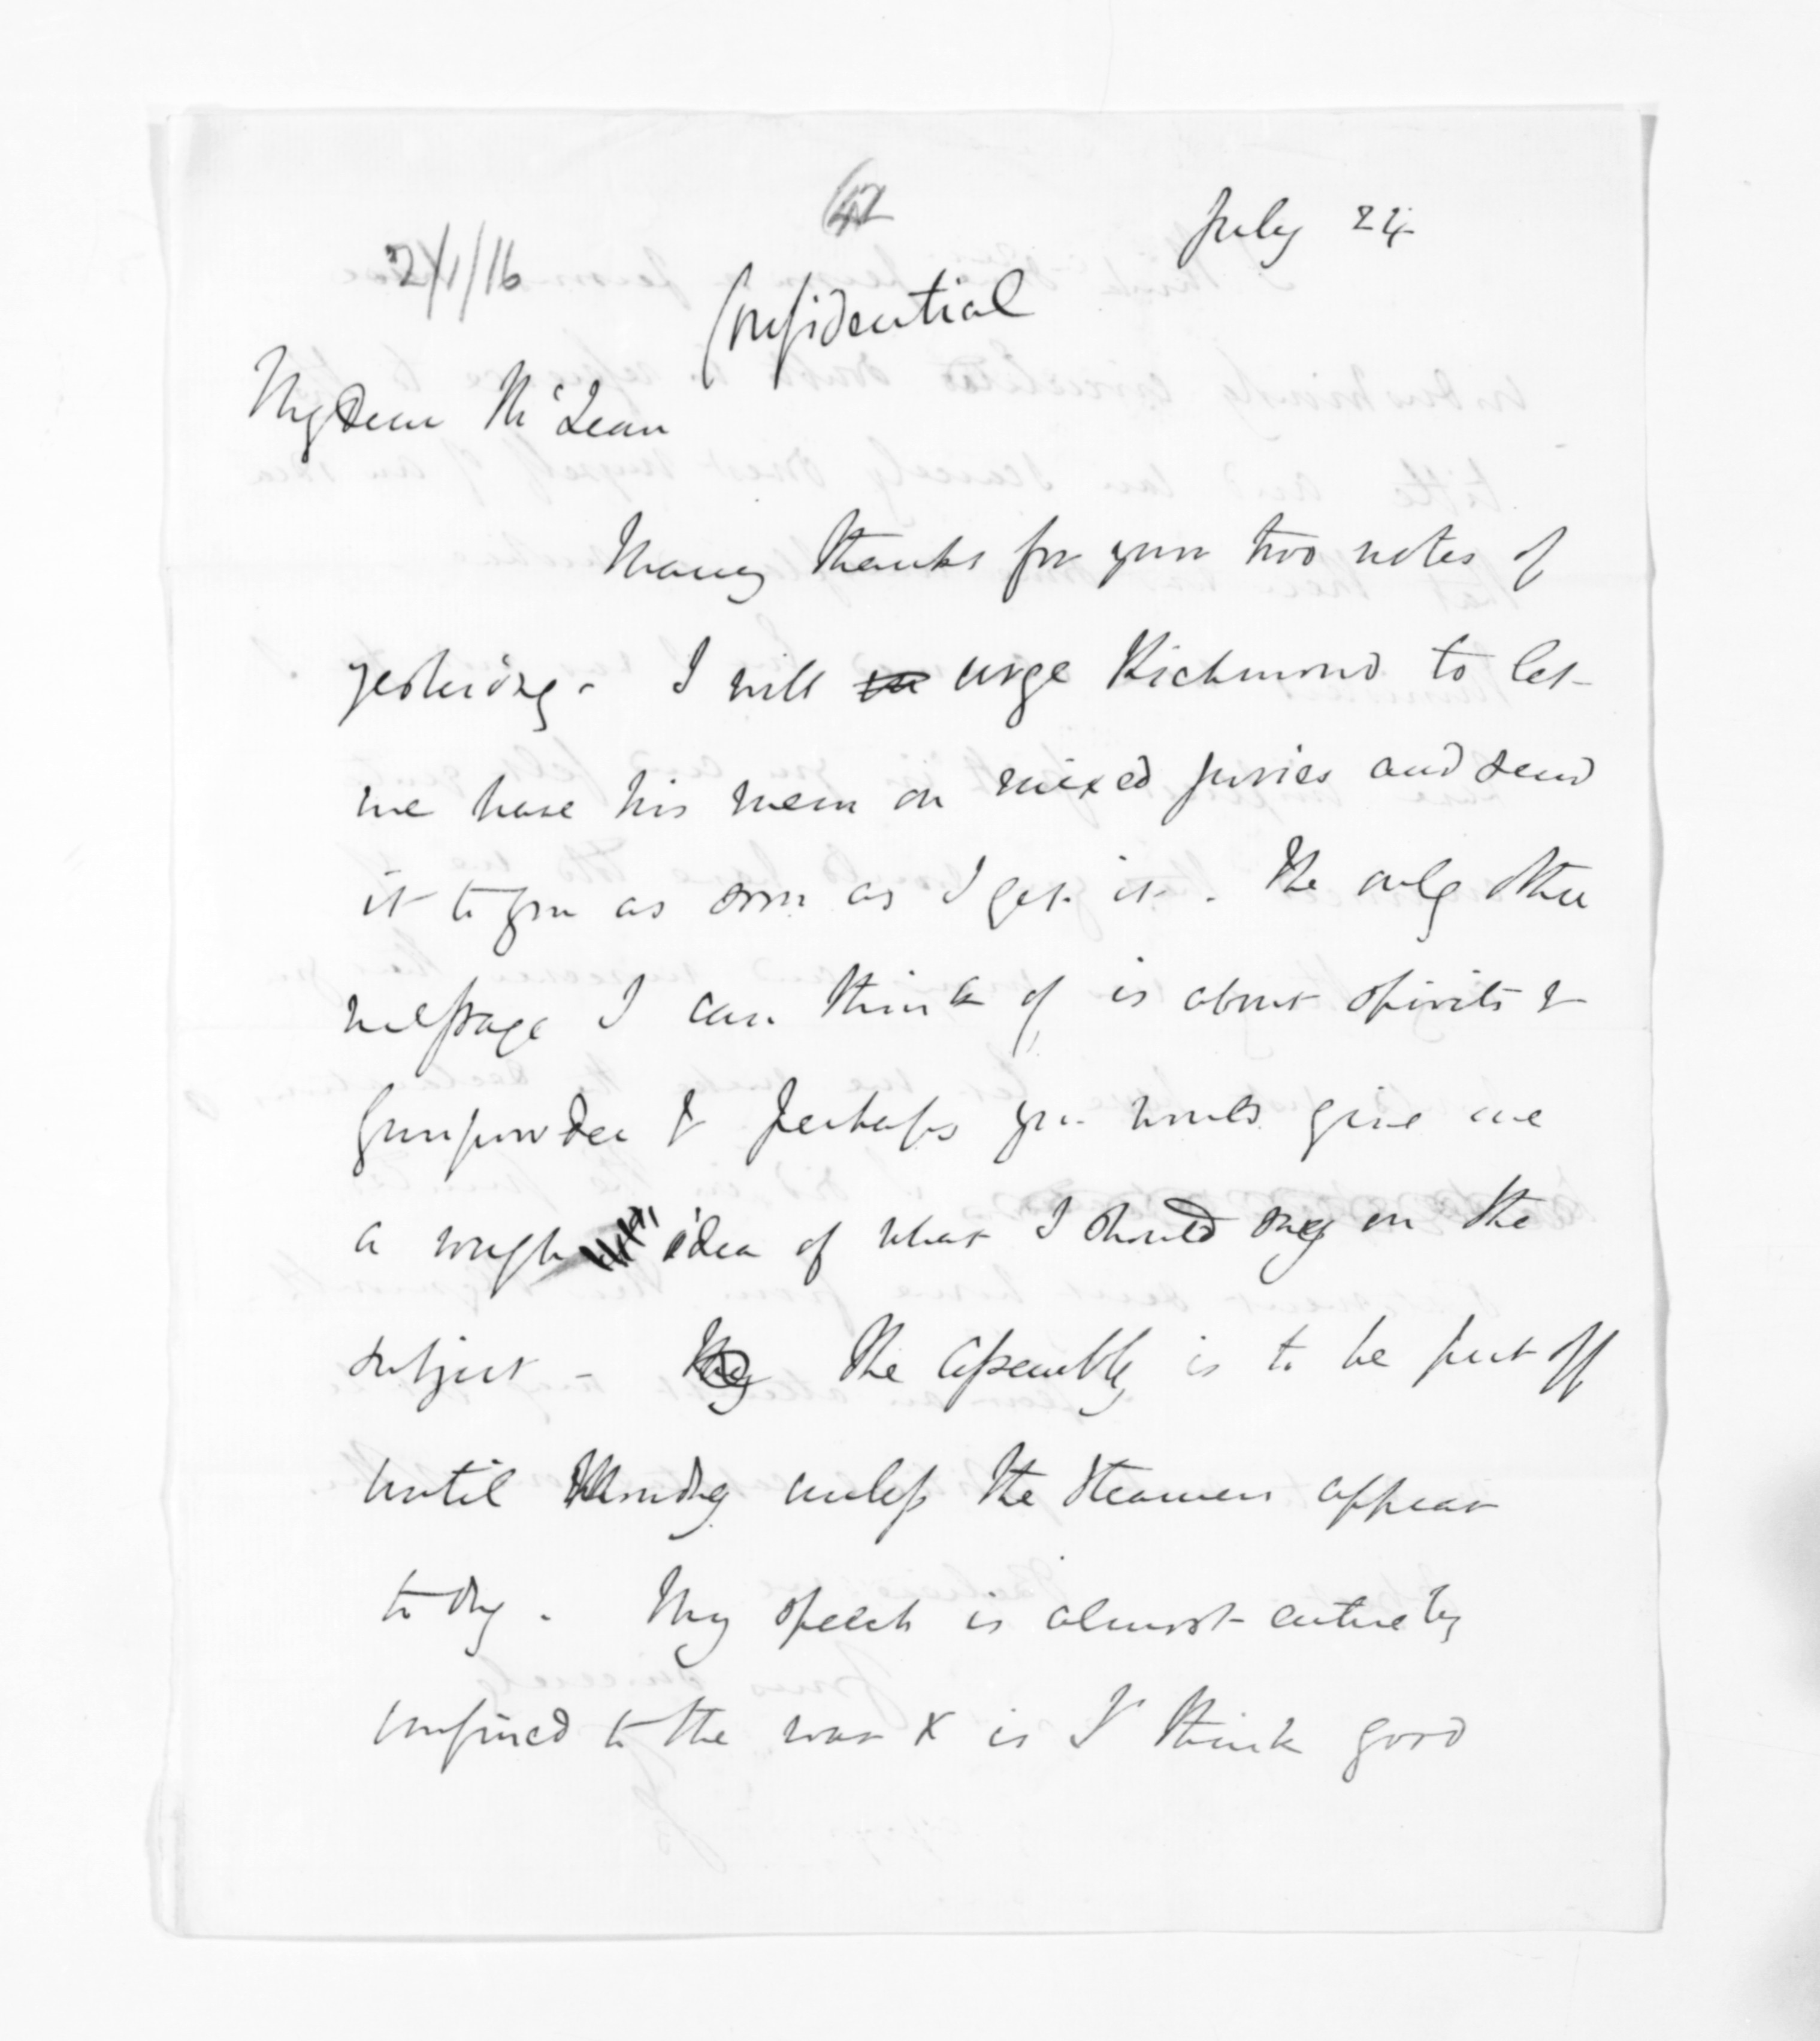 July 24
2/1/16
Confidential
My Dear McLean
Many thanks for your two notes of
yesterday. I will urge Richmond to let
me have his mem on mixed juries and send
it to you as soon as I get it. The only other
message I can think of is about spirits &
Gunpowder & perhaps you would give me
a rough idea of what I should say on the
subject - The assembly is to be put off
until Monday unless the steamers appear
to day. My speech is almost entirely
confined to the war & is I think good